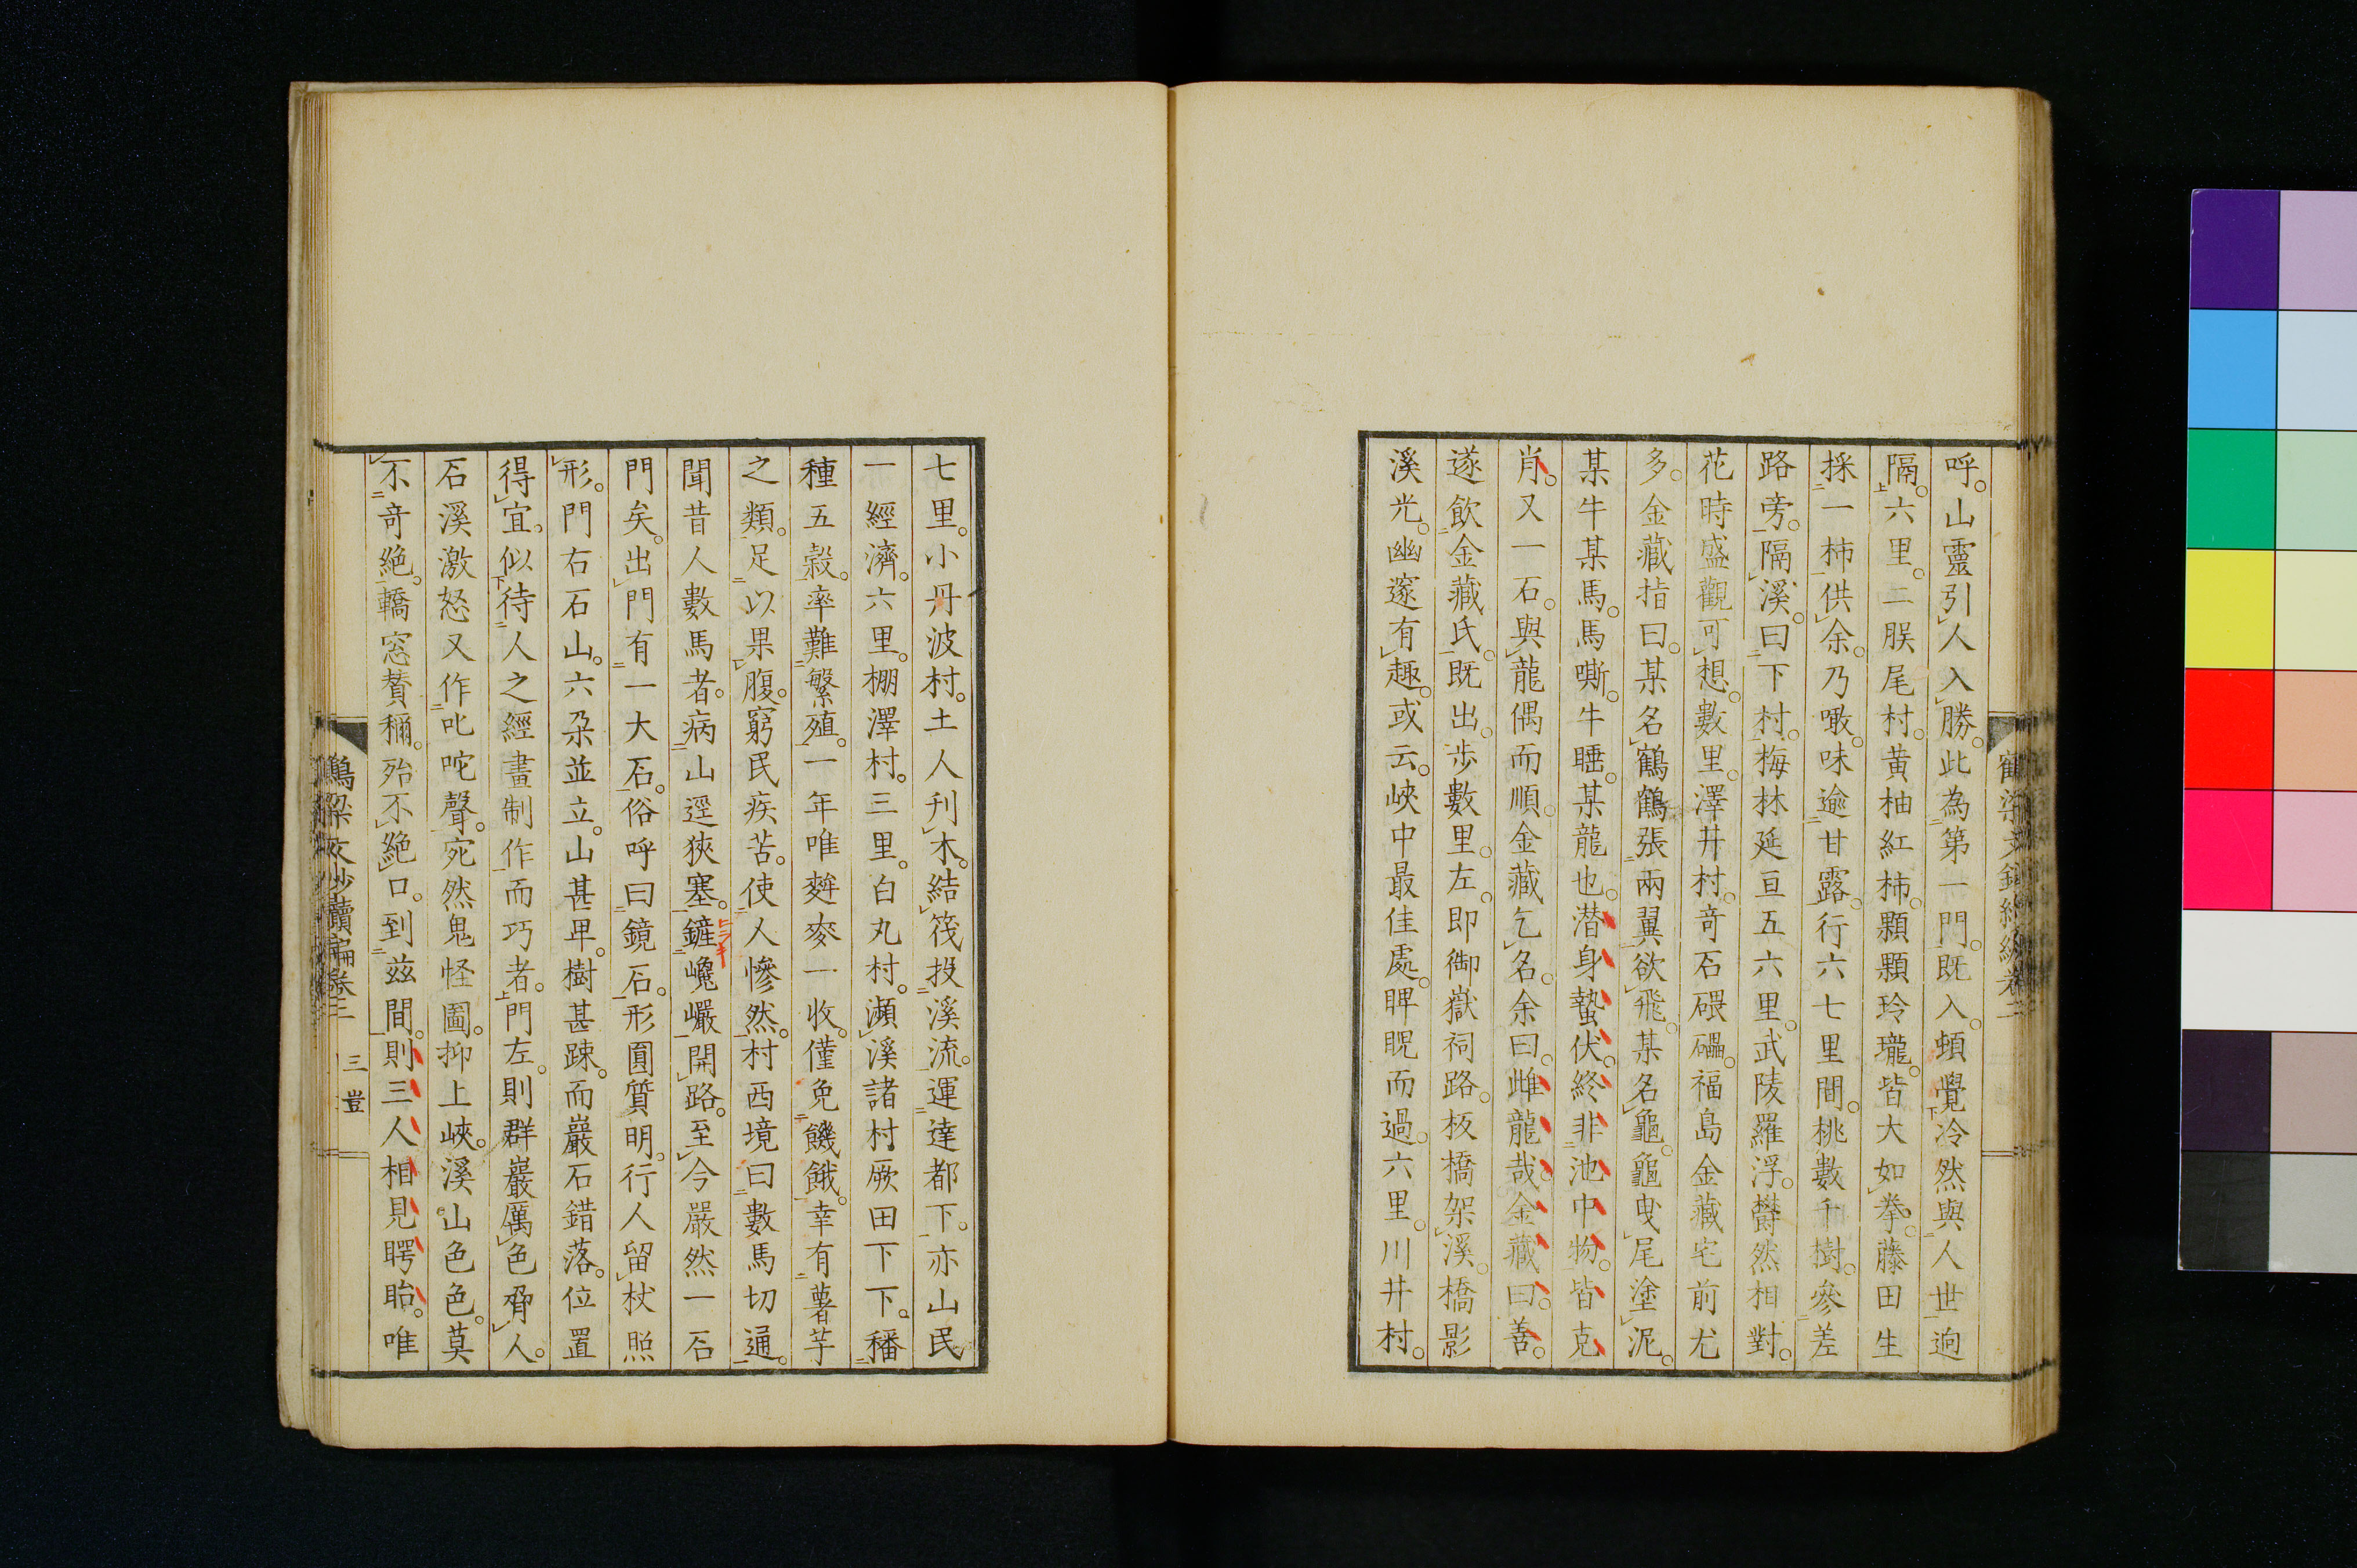 呼。山靈引人入勝。此為第一門。既入。頓覺冷然與人世逈
隔。六里。二朕尾村。黄柚紅柿。顆顆玲瓏。皆大如拳。藤田生
採一柿供余。乃噉。味逾甘露。行六七里間。桃數千樹。參差
路旁。隔溪。曰下村。梅林延亘五六里。武陵羅浮。欝然相對。
花時盛觀可想。數里。澤井村。竒石磈礧。福島金藏宅前尤
多。金藏指曰。某名鶴。鶴張兩翼欲飛。某名龜。龜曳尾塗泥。
某牛某馬。馬嘶。牛睡。某龍也。潜身蟄伏。終非池中物。皆克
肖。又一石。與龍偶而順。金藏乞名。余曰。雌龍哉。金藏曰。善。
遂飲金藏氏。既出。歩數里。左。即御嶽祠路。板橋架溪。橋影
溪光。幽邃有趣。或云。峽中最佳處。睥睨而過。六里。川井村。
七里。小丹波村。土人刋木。結筏投溪流。運達都下。亦山民
一經濟。六里。棚澤村。三里。白丸村。瀕溪諸村。厥田下下。穜
種五榖。率難繁殖。一年唯麰麥一收。僅免饑餓。幸有薯芋
之類。足以果腹。窮民疾苦。使人慘然。村西境曰數馬切通。
聞昔人數馬者。病山逕狹塞。鏟巉巗開路。至今嚴然一石
門矣。出門有一大石。俗呼曰鏡石。形圓質明。行人留杖照
形。門右石山。六朶並立。山甚卑。樹甚踈。而巖石錯落。位置
得宜。似待人之經畫制作而巧者。門左。則群巖厲色脅人。
石溪激怒又作叱咤聲。宛然鬼怪圖。抑上峽。溪山色色。莫
不竒絶。轎窓賛稱。殆不絶口。到茲間。則三人相見瞪眙。唯
鶴梁文鈔續編卷二
三 豈